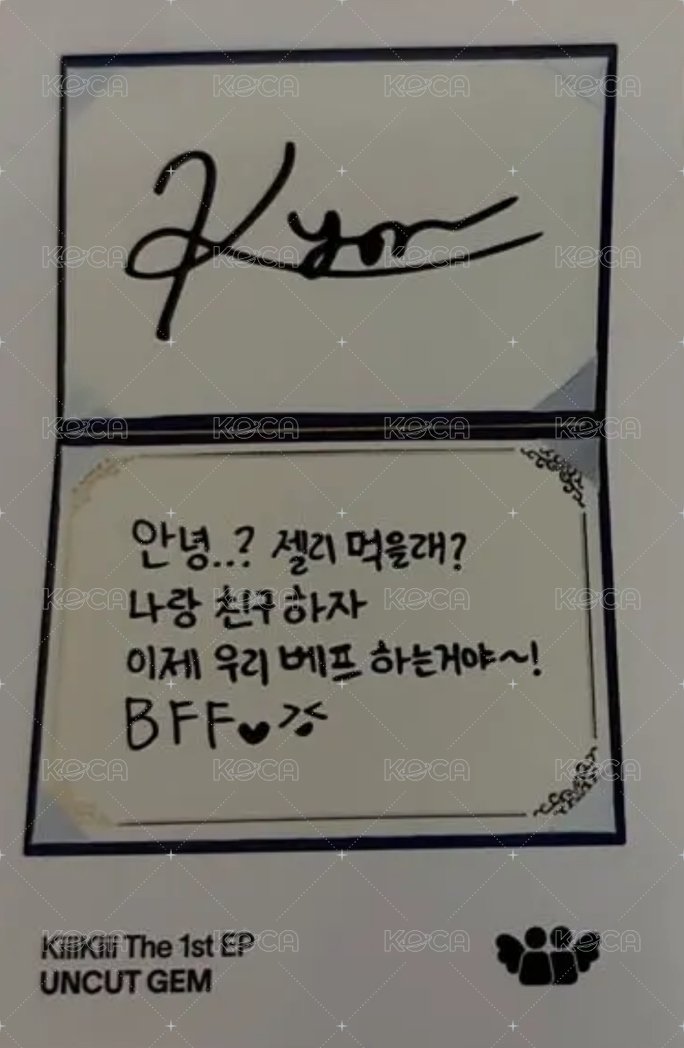 Kyon
안녕..? 젤리 먹을래?
나랑 친구하자
이제 우리 베프 하는거야~!
BFF♥
KiiiKiii The 1st EP
UNCUT GEM
KOCA